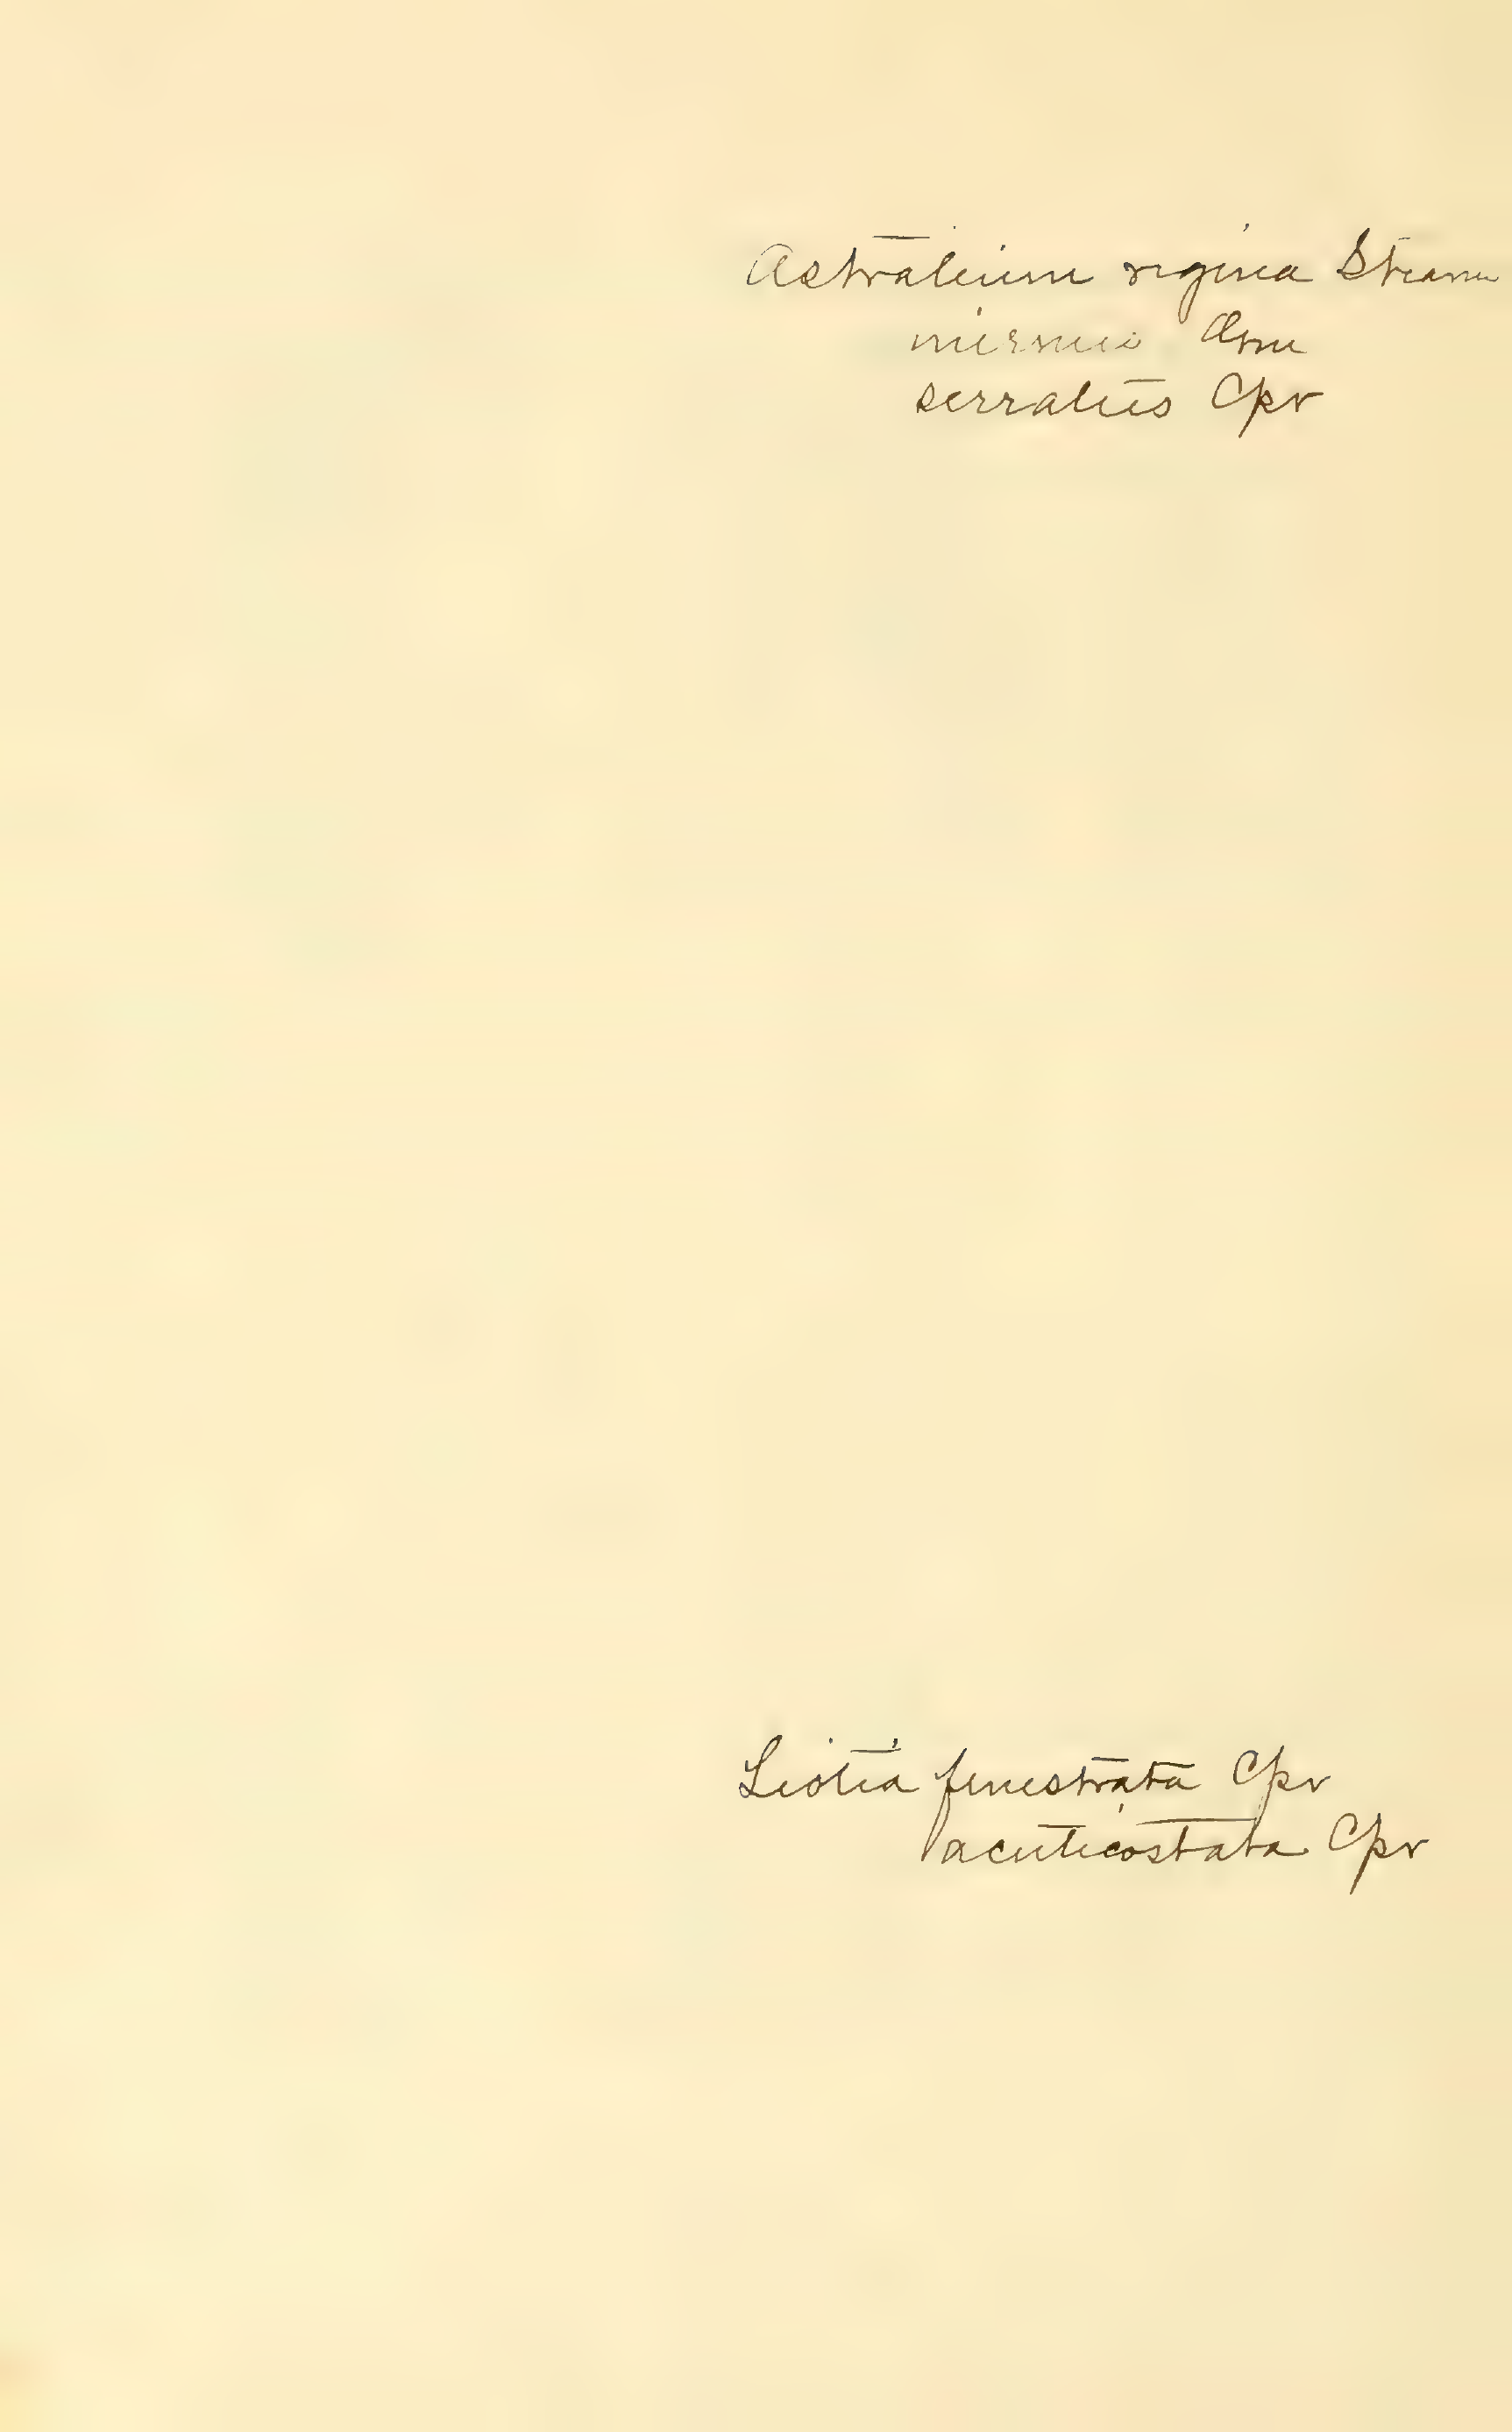 Astralium regina Stearns
inermis Gm
serratus Cpr
Liotia fenestrata Cpr
acuticostata Cpr